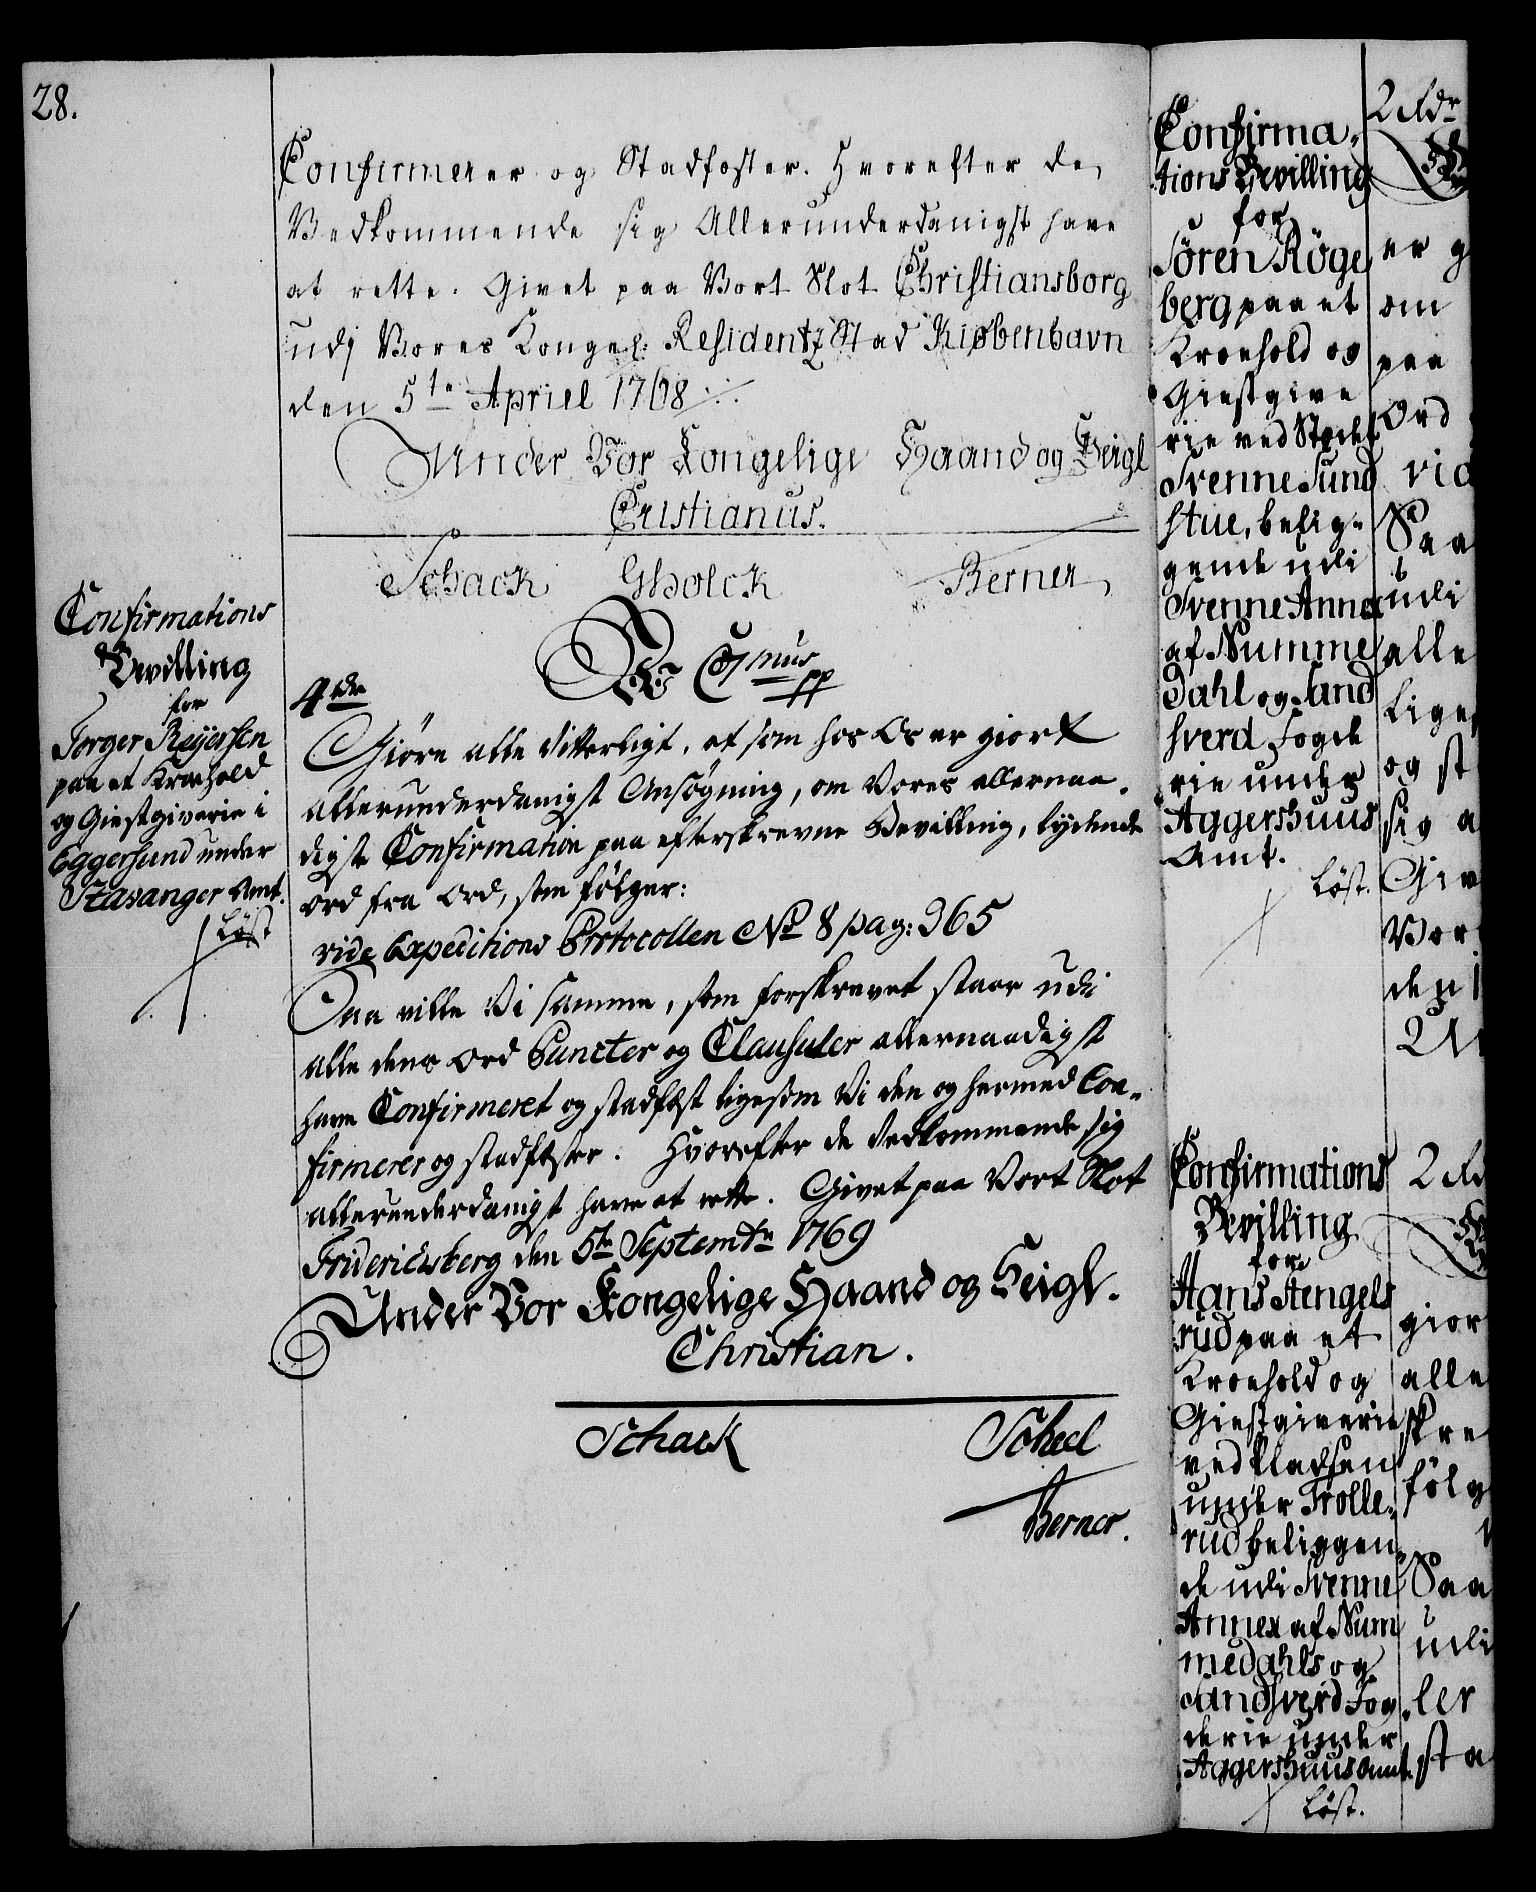 28.
Confirmerer og Stadfæster. Hvorefter de
Vedkommende sig Allerunderdanigst have
at rette. Givet paa Vort Slot Christiansborg
udj Vores Kongel: Residentz Stad Kiøbenhavn
den 5te Apriel 1768
Under Vor Kongelige Haand og Seigl
Cristianus.
Schack GHolck Berner
Confirmations
Bevilling
for
Torger Reyersen
paa et Kroehold
og Giestgiverie i
Eggersund under
Stavanger Amt.
løst
4de
VC 7mus pp
Giøre alle Vitterligt, at som hos Os er giort
allerunderdanigst Ansøgning, om Vores allernaa-
digste Confirmation paa efterskrevne Bevilling, lydende
Ord fra Ord, som følger:
vide Expeditions Protocollen No 8 pag: 365
Saa ville Vi samme, som forskrevet staar udi
alle dens Ord Puncter og Clausuler allernaadigst
have Confirmeret og stadfæst ligesom Vi den og hermed Con-
firmerer og stadfæster. Hvorefter de Vedkommende sig
allerunderdanigst have at rette. Givet paa Vort Slot
Friderichsberg den 5te Septembr 1769
Under Vor Kongelige Haand og Seigl.
Christian.
Schack Scheel
Berner.
Confirma-
tions Bevilling
for
Søren Röge
berg paa et
Kroehold og
Giestgive
rie ved
Svenne Sund
stue, belig-
gende udi
Svenne Annex
af Numme
Dahl og Sand
sverd Fogde
rie under
Aggershuus
Amt.
løst.
2den
er g
om
paa
Ord
vid
Saa
udi
alle
lige
og st
sig a
Giv
Vor
den
Un
Confirmations
Bevilling
for
Hans Stengels
rud paa et
Kroehold og
Giestgiverie
ved Pladsen
under Trolle-
rud beliggen-
de udi Svenne
Annex af Num
medahls og
Sandsverd Fog-
derie under
Aggershuus Amt.
løst.
2de
gior
alle
skre
følg
Saa
udi
ler
sta